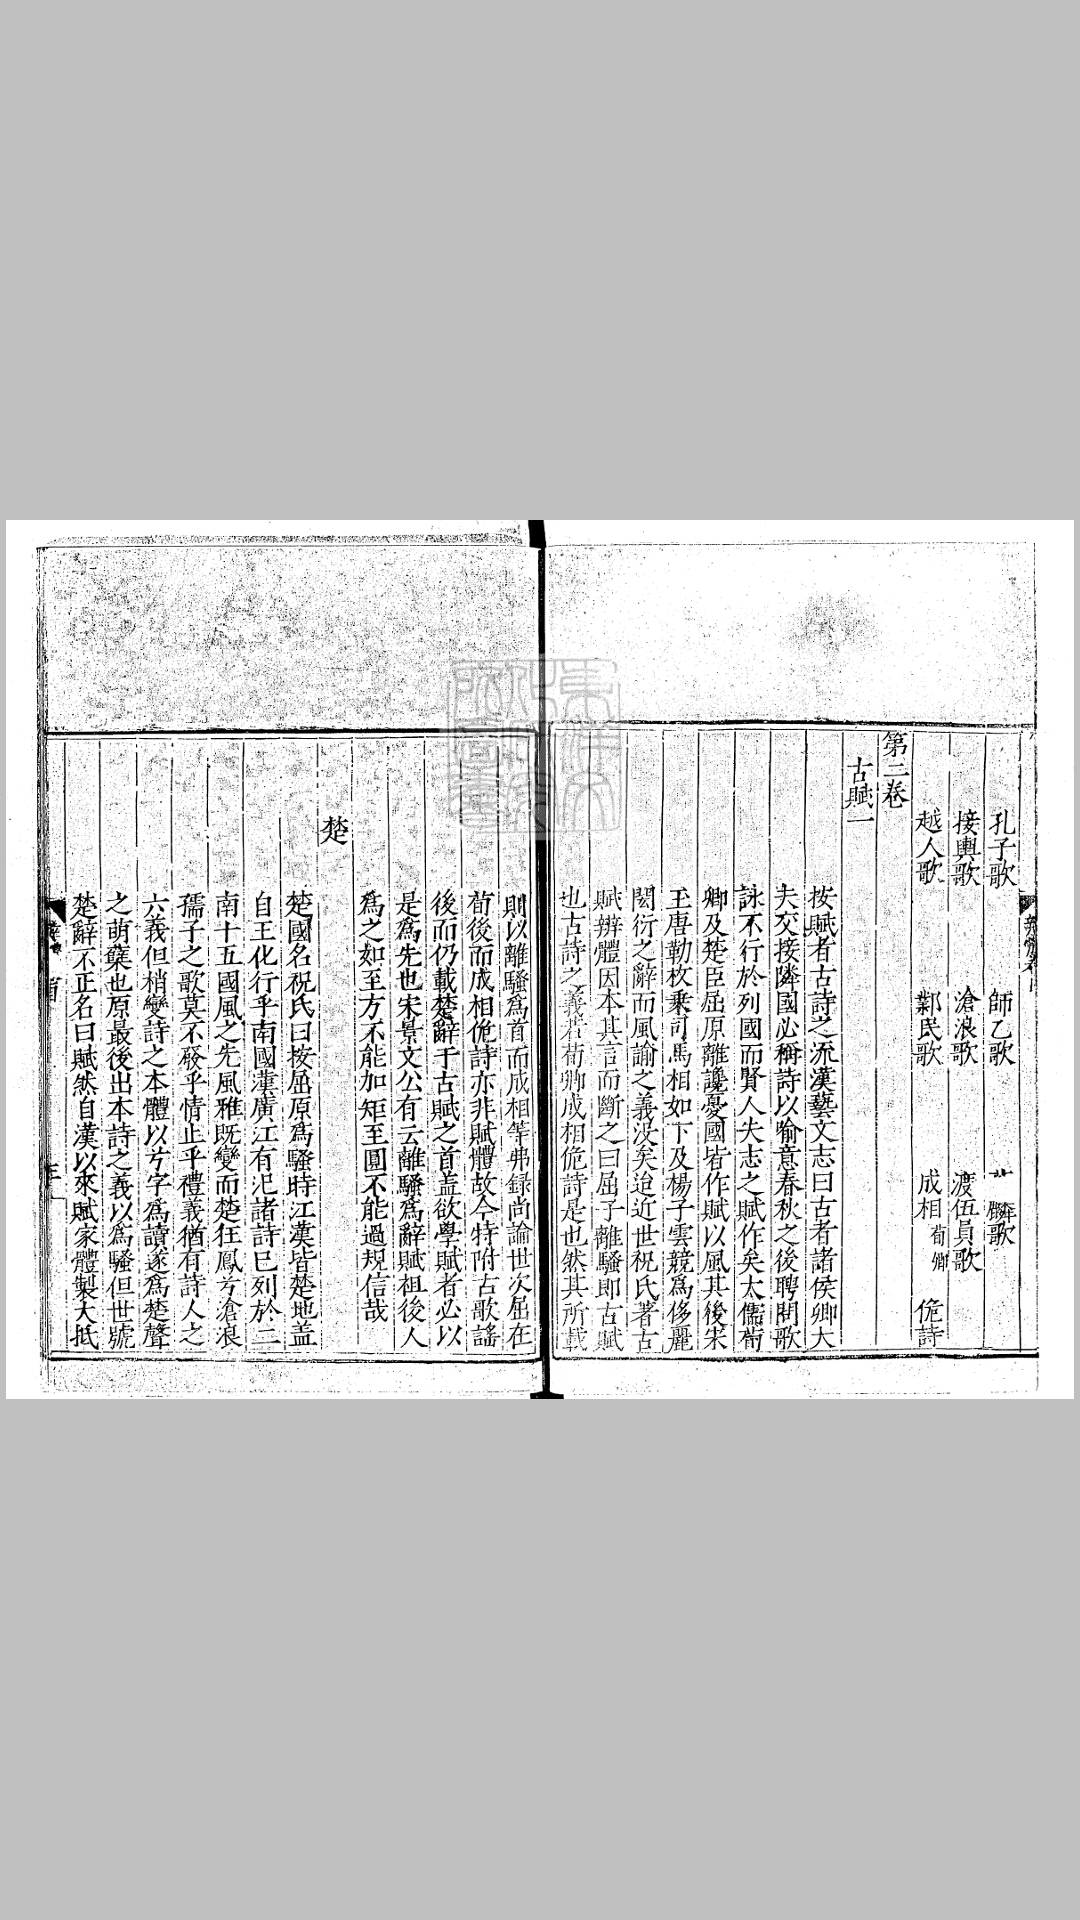 孔子歌 師乙歌 歌
接輿歌 滄浪歌 渡伍員歌
越人歌 鄴民歌 成相荀卿 佹詩
第三卷
古賦一
按賦者古詩之流漢藝文志曰古者諸侯卿大
夫交接隣國必稱詩以喻意春秋之後聘問歌
詠不行於列國而賢人失志之賦作矣太儒荀
卿及楚臣屈原離讒憂國皆作賦以風其後宋
玉唐勒枚乗司馬相如下及楊子雲競為侈麗
閎衍之辭而風諭之義没矣迨近世祝氏著古
賦辨體因本其言而斷之曰屈子離騷即古賦
也古詩之義若荀卿成相佹詩是也然其所載
則以離騷為首而成相等弗録尚論世次屈在
荀後而成相佹詩亦非賦體故今特附古歌謠
後而仍載楚辭于古賦之首盖欲學賦者必以
是為先也宋景文公有云離騷為辭賦祖後人
為之如至方不能加矩至圓不能過規信哉
楚
楚國名祝氏曰按屈原為騷時江漢皆楚地盖
自王化行乎南國漢廣江有汜諸詩已列於二
南十五國風之先風雅既變而楚狂鳳兮滄浪
孺子之歌莫不發乎情止乎禮義猶有詩人之
六義但稍變詩之本體以兮字為讀遂為楚聲
之萌蘗也原最後出本詩之義以為騷但世號
楚辭不正名曰賦然自漢以來賦家體製大抵